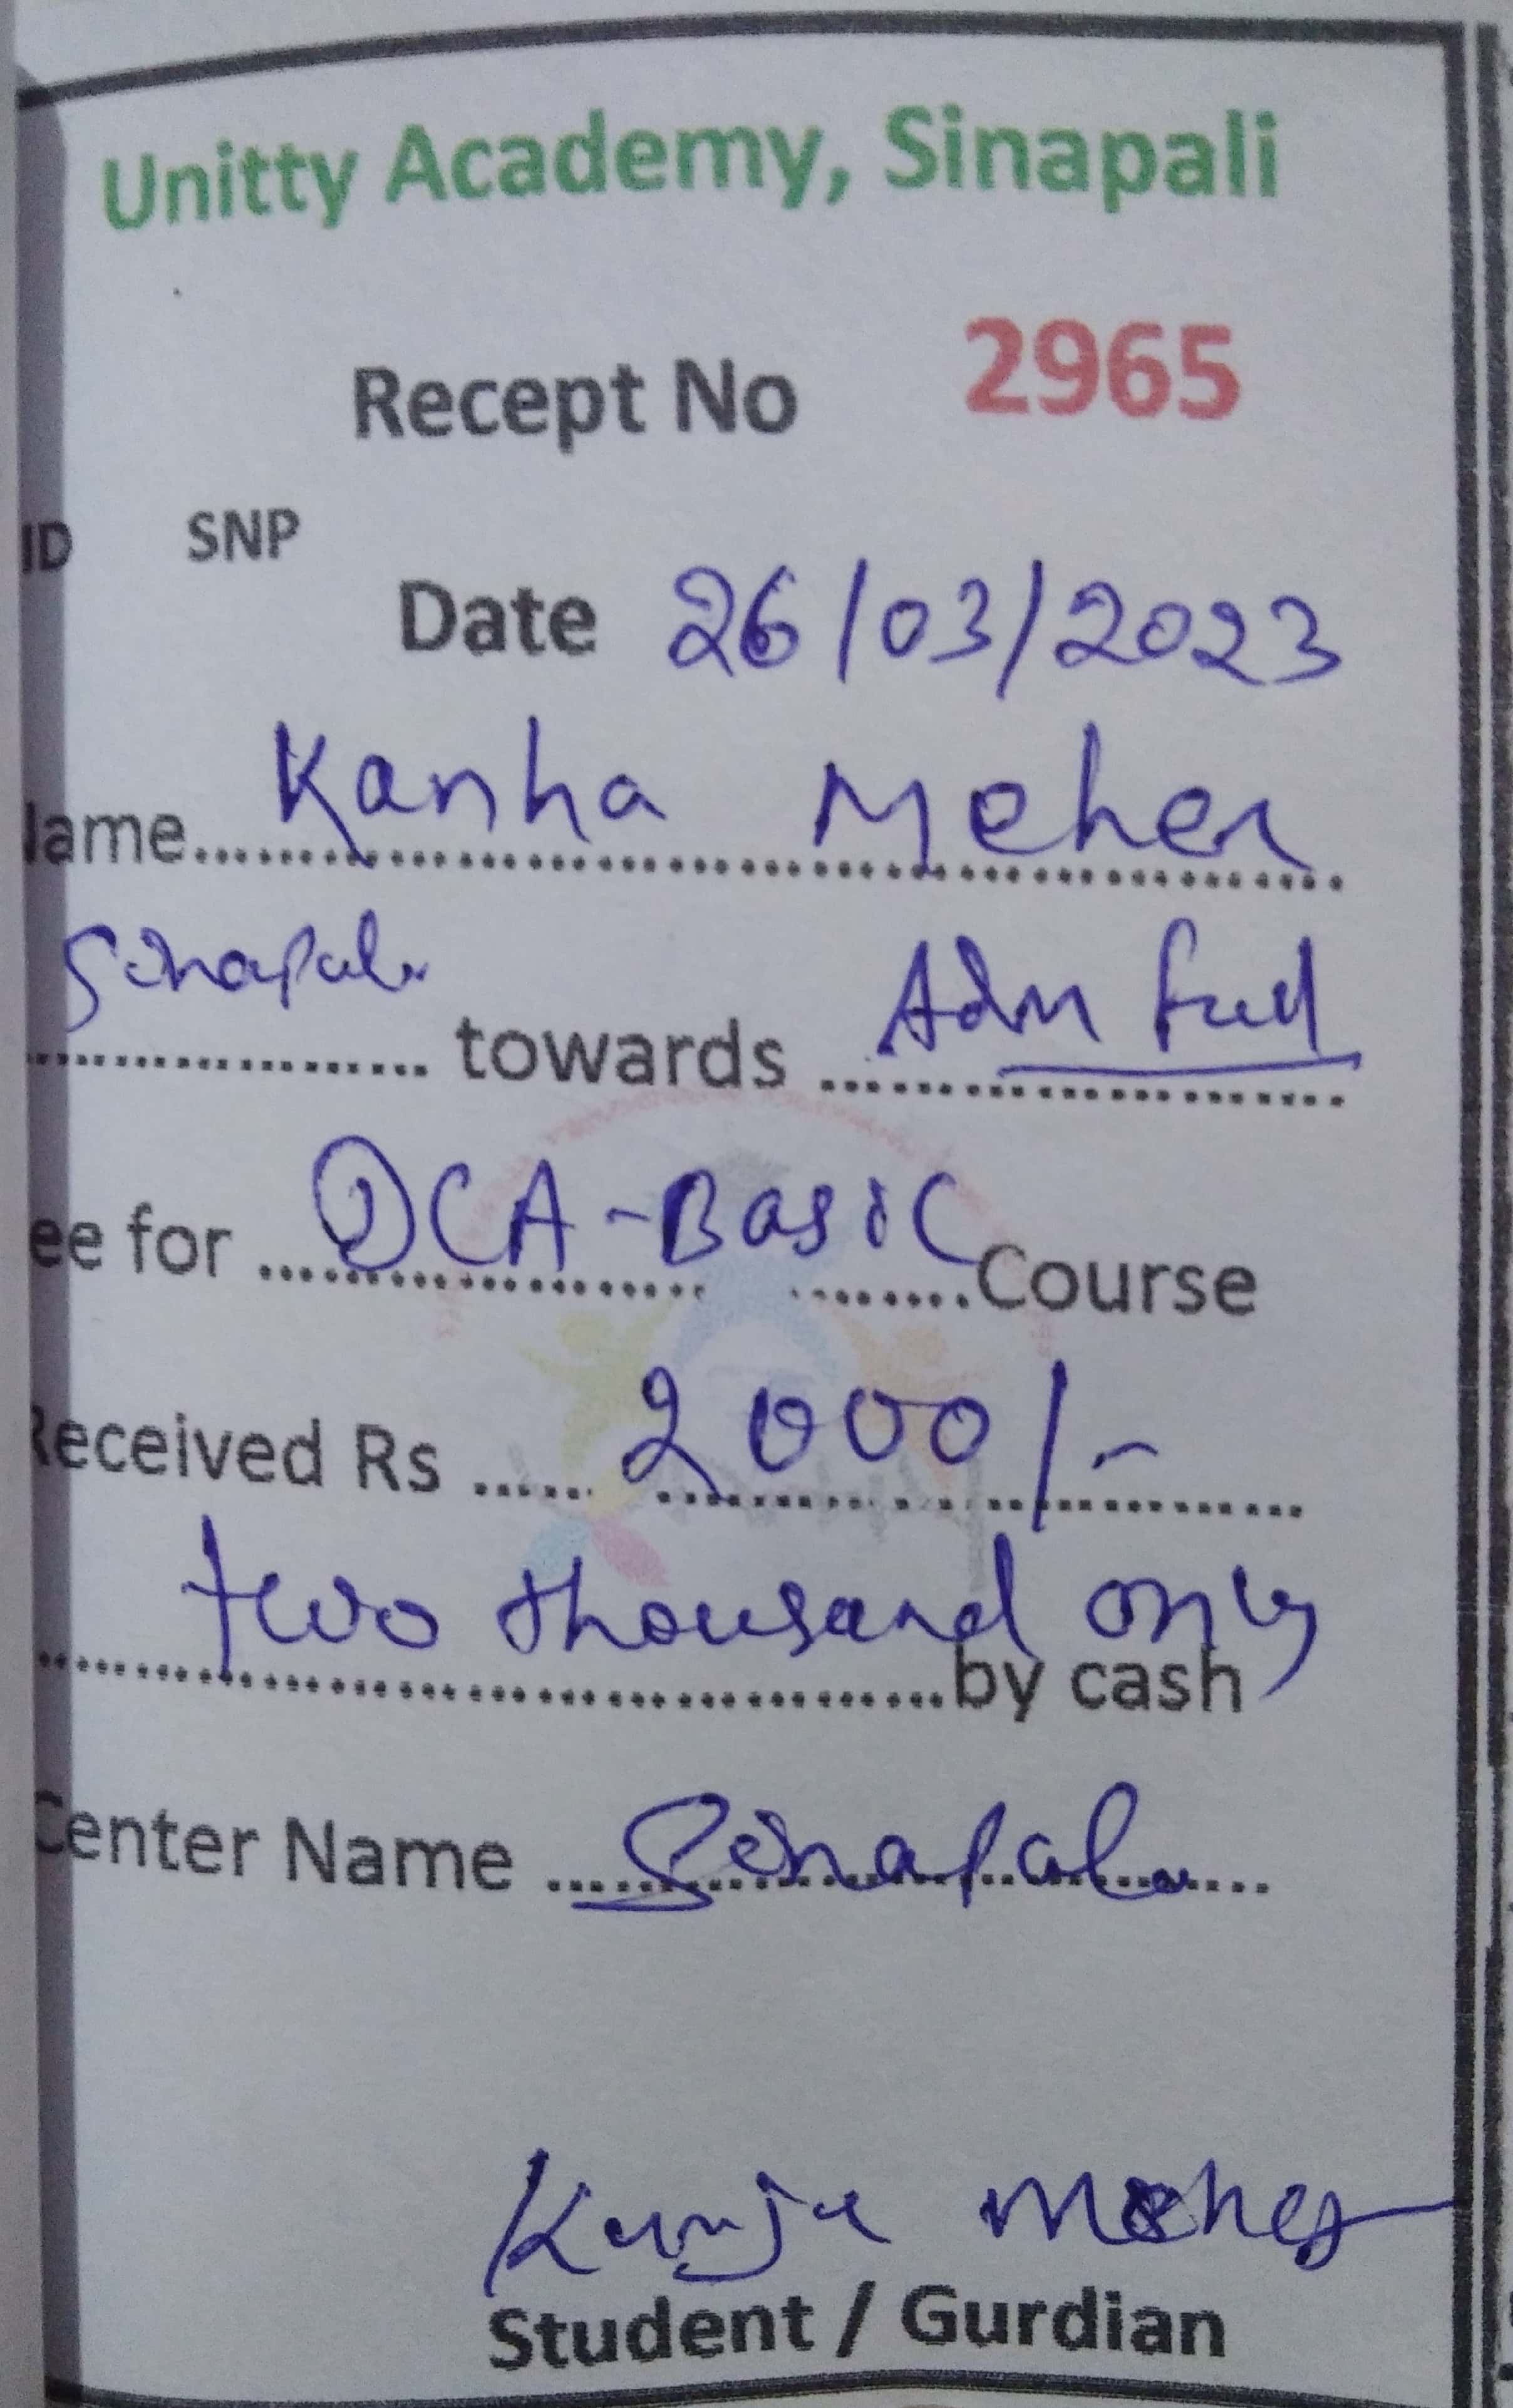 Unitty Academy, Sinapali
Recept No 2965
ID SNP
Date 26/03/2023
Name Kanha Meher
Sinapali towards Adm full
ee for DCA-Basic Course
Received Rs 2000/-
two thousand only by cash
Center Name Sinapali
Kunja Meher
Student / Gurdian